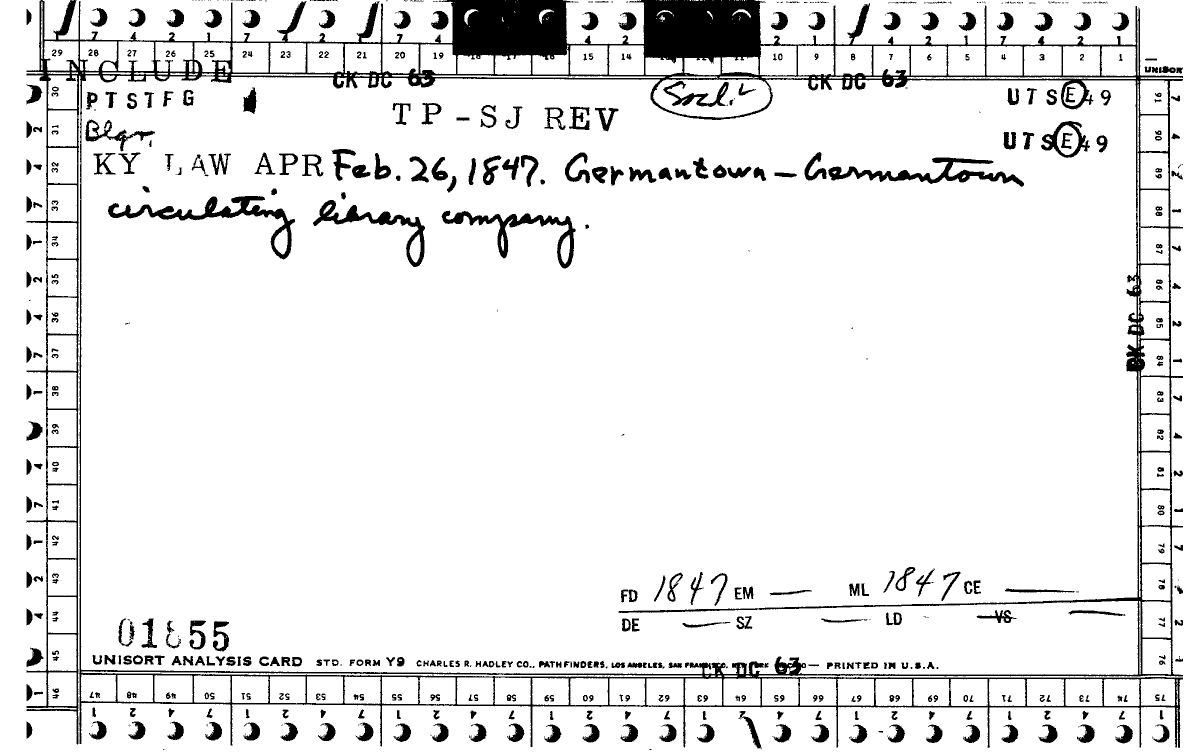 7 4 2 1 7 4 2 1 7 4 4 2 2 1 7 4 2 1
29 28 27 26 25 24 23 22 21 20 19 18 16 15 14 10 9 8 7 6 5 4 3 2 1
INCLUDE CK DC 63 CK DC 63 UNISORT
PTSTFG Socl. L UTSE49
TP-SJ REV
Blgr. UTSE49
KY LAW APR Feb. 26, 1847. Germantown – Germantown
circulating library company.
30 31 32 33 34 35 36 37 38 39 40 41 42 43 44 45 46
91 90 89 88 87 86 85 84 83 82 81 80 79 78 77 76
CK DC 63
FD 1847 EM — ML 1847 CE —
DE — SZ — LD — VS —
01855
UNISORT ANALYSIS CARD STD. FORM Y9 CHARLES R. HADLEY CO., PATHFINDERS, LOS ANGELES, SAN FRANCISCO, — PRINTED IN U.S.A.
CK DC 63
47 48 49 50 51 52 53 54 55 56 57 58 59 60 61 62 63 64 65 66 67 68 69 70 71 72 73 74 75
1 2 4 7 1 2 4 7 1 2 4 7 1 2 4 7 1 2 4 7 1 2 4 7 1 2 4 7 1